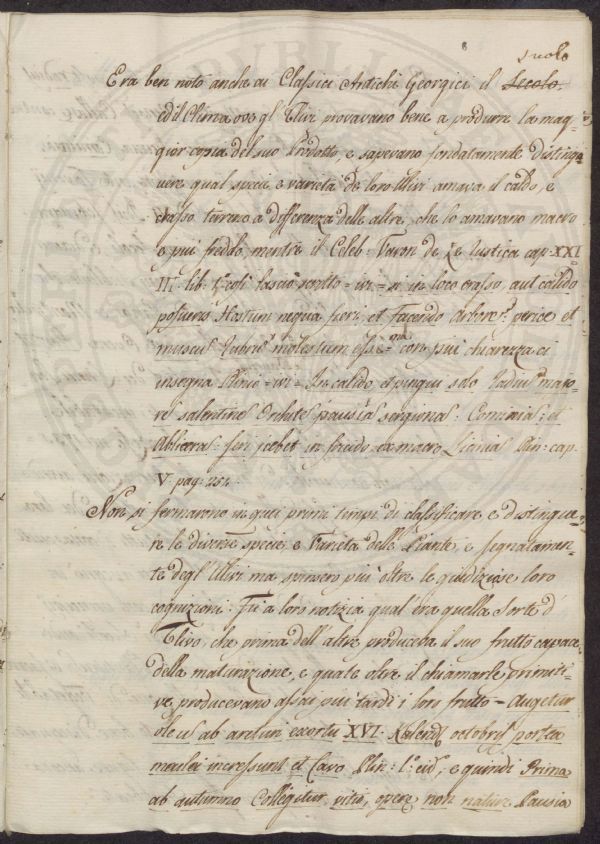 suolo
Era ben noto anche ai Classici Antichi Georgici il Secolo
ed il Clima ove gl'Ulivi provavano bene a produrre la mag-
gior copia del suo Prodotto, e sapevano fondatamente disting-
uere qual specie, e varietà de loro Ulivi amava il caldo, e
crasso terreno a differenza delle altre, che lo amavano macro
e più freddo, mentre il Celeb: Varon de Re Rustica cap. XXI
III: lib: 1: egli lasciò scritto = ivi = in loco crasso, aut calido
posueris Hostum nequa fieri et facendo arbore perire et
muscus rubrus molestum esse = con più chiarezza ci
insegna Plinio = ivi = In calido, et pingui solo Radius majo-
re salentine Orchites pausia sergiana: Cominia: et
Albicera: seri jebet in frido, ex macro Licinia Plin: cap.
V. pag: 252.
Non si fermarono in quei primi tempi di classificare e distingua-
re le diverse specie, e Varietà delle Piante, e segnataman-
te degl'Ulivi ma spinsero più oltre le giudiziose loro
cognizioni: Fù a loro notizia qual'era quella sorte d'
Ulivo, che prima dell'altre produceva il suo frutto capace
della maturazione, e quale oltre il chiamarle primiti-
ve, producevano assai più tardi i loro frutto = Augetur
oleus ab arcturi exortu XVI. Kalend: octobris postea
nuclei incressunt et Caro Plin: l: eid:, e quindi Prima
ab autumno Collegitur, vitio, opere non nature Pausia